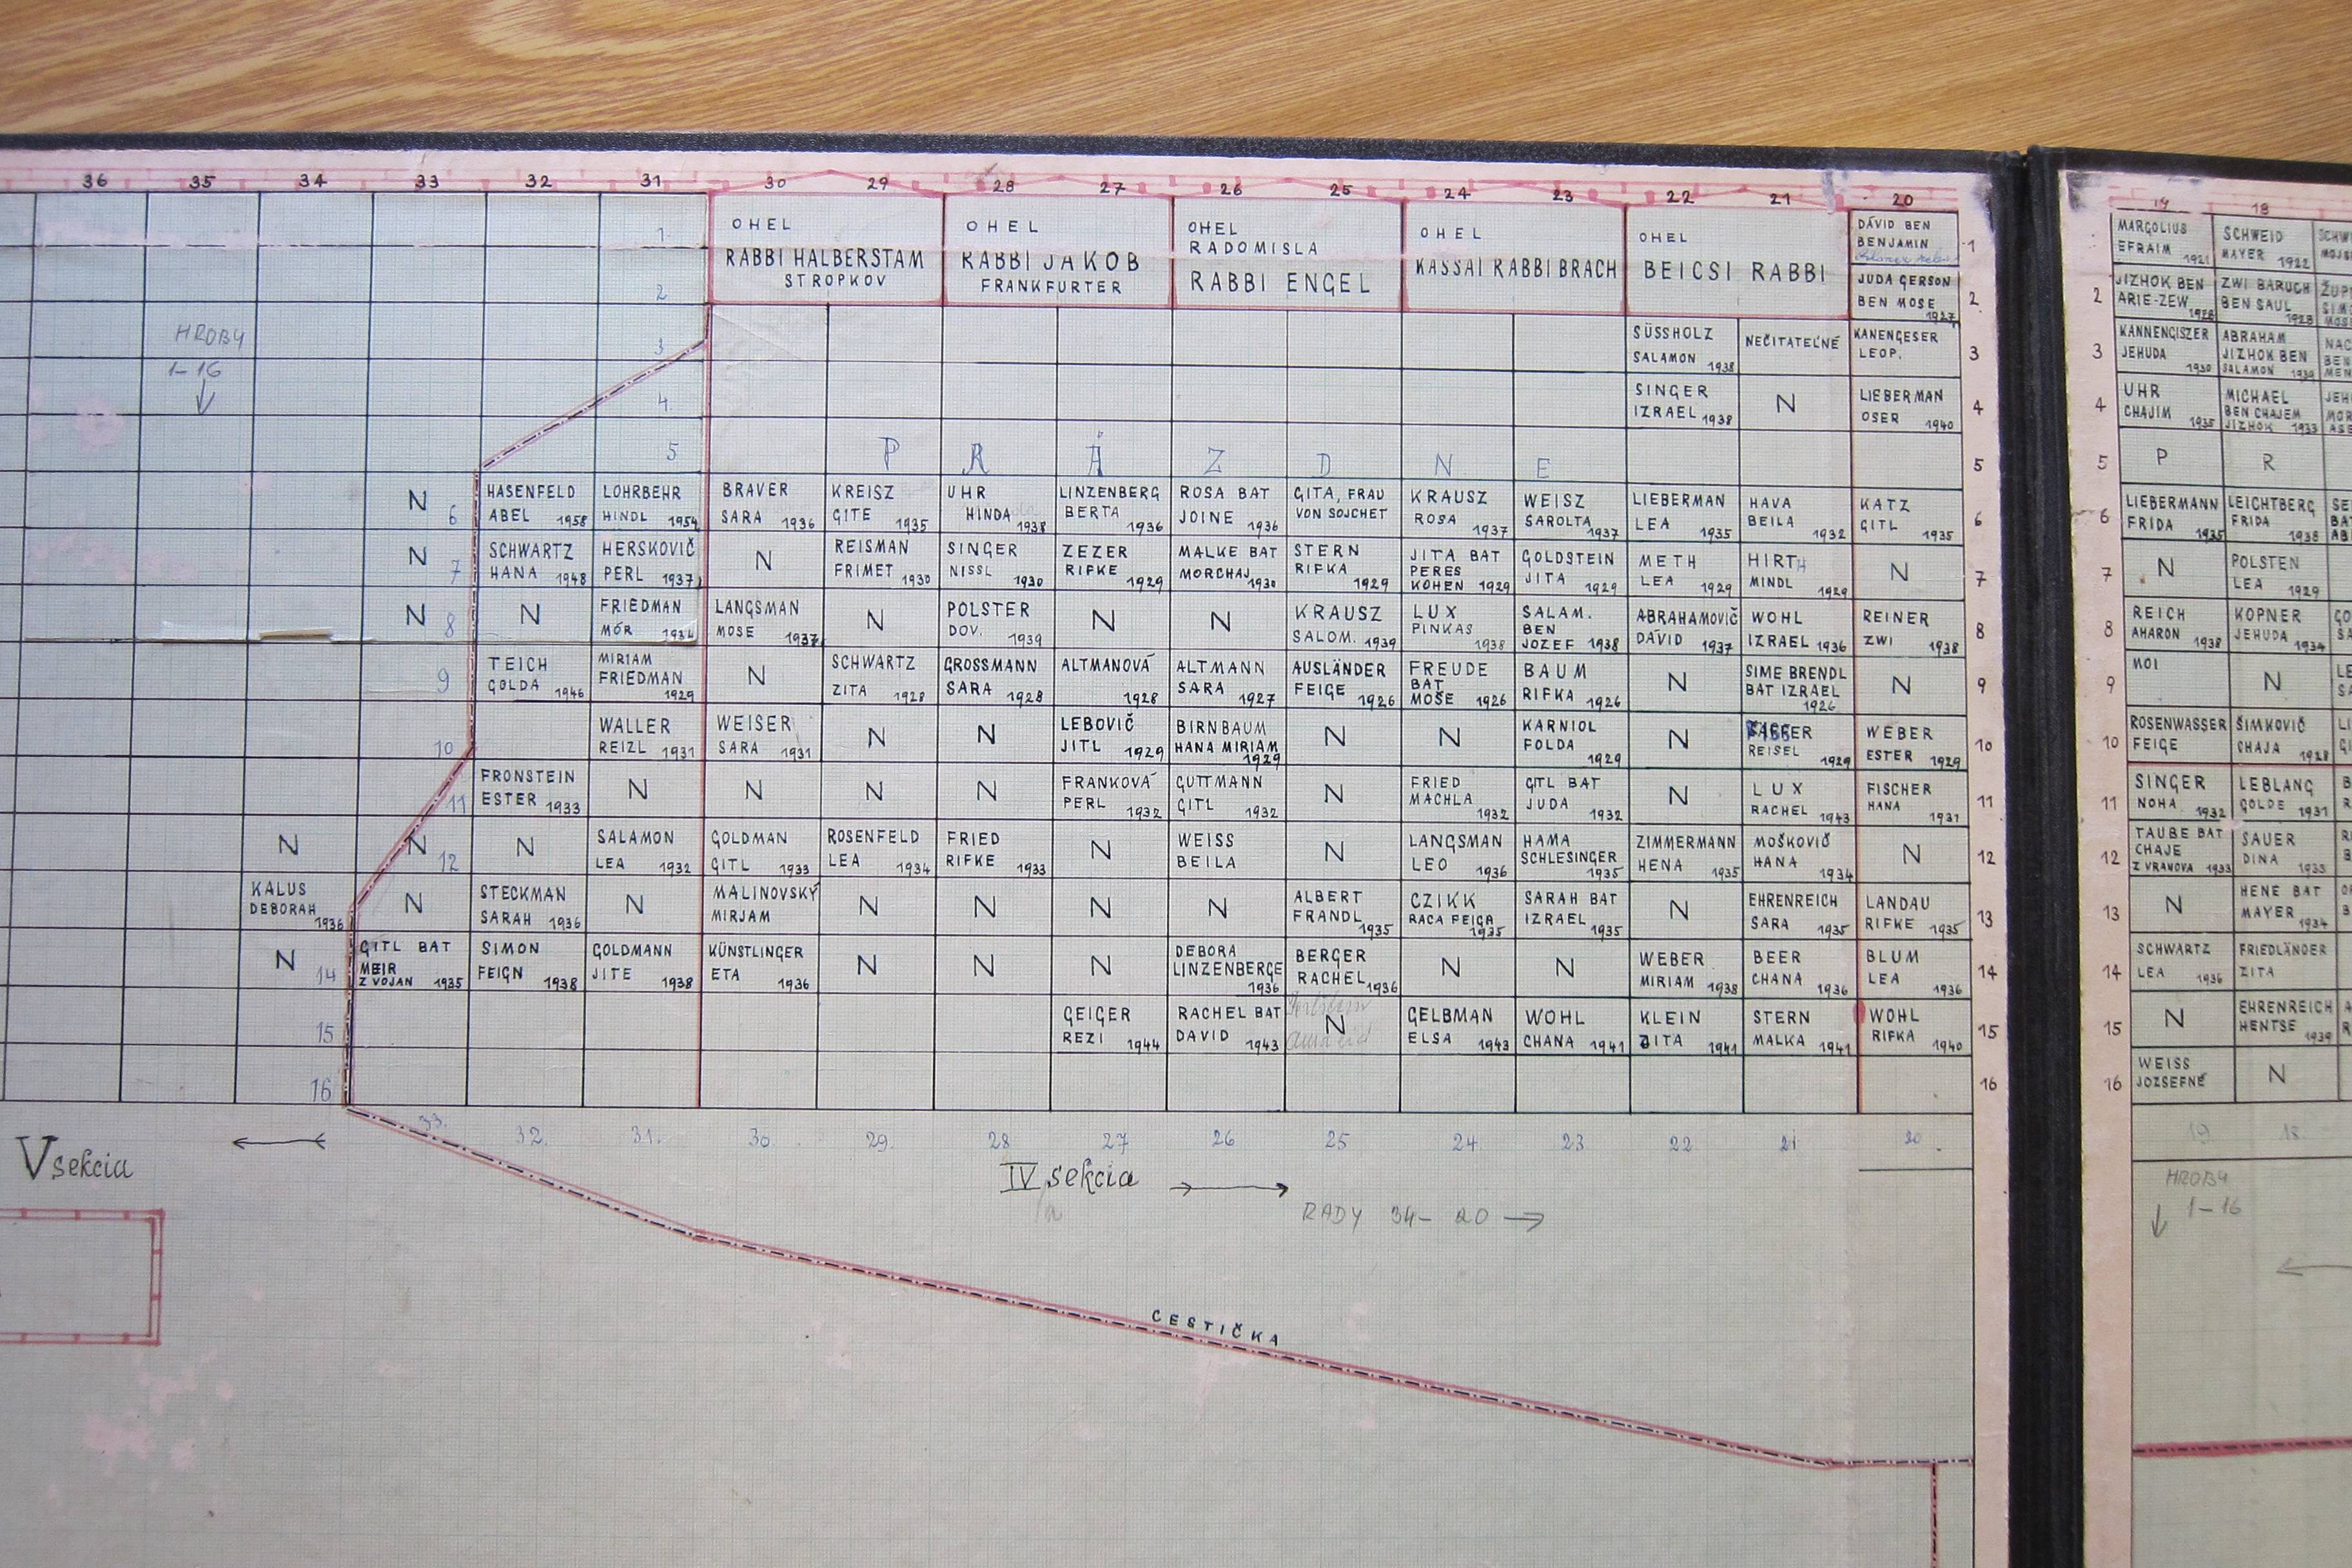 36 35 34 33 32 31 30 29 28 27 26 25 24 23 22 21 20 19 18
1 OHEL RABBI HALBERSTAM STROPKOV
OHEL RABBI JAKOB FRANKFURTER
OHEL RADOMISLA RABBI ENGEL
OHEL KASSAI RABBI BRACH
OHEL BEICSI RABBI
DÁVID BEN BENJAMIN 1
MARGOLIUS EFRAIM 1921
SCHWEID MAYER 1922
2 JUDA GERSON BEN MOSE 1927 2
2 JIZHOK BEN ARIE-ZEW 1928
ZWI BARUCH BEN SAUL 1928
HROBY
1-16
3 SÜSSHOLZ SALAMON 1938
NEČITATEĽNÉ
KANENGESER LEOP. 3
3 KANNENGISZER JEHUDA 1930
ABRAHAM JIZHOK BEN SALAMON 1930
4 SINGER IZRAEL 1938
N
LIEBERMAN OSER 1940 4
4 UHR CHAJIM 1935
MICHAEL BEN CHAJEM JIZHOK 1933
5 P R Á Z D N E 5
5 P R
N 6
HASENFELD ABEL 1958
LOHRBEHR HINDL 1954
BRAVER SARA 1936
KREISZ GITE 1935
UHR HINDA 1938
LINZENBERG BERTA 1936
ROSA BAT JOINE 1936
GITA, FRAU VON SOJCHET
KRAUSZ ROSA 1937
WEISZ SAROLTA 1937
LIEBERMAN LEA 1935
HAVA BEILA 1932
KATZ GITL 1935 6
6 LIEBERMANN FRIDA 1935
LEICHTBERG FRIDA 1938
N 7
SCHWARTZ HANA 1948
HERSKOVIČ PERL 1937
N
REISMAN FRIMET 1930
SINGER NISSL 1930
ZEZER RIFKE 1929
MALKE BAT MORCHAJ 1930
STERN RIFKA 1929
JITA BAT PERES KOHEN 1929
GOLDSTEIN JITA 1929
METH LEA 1929
HIRTH MINDL 1929
N 7
7 N
POLSTEN LEA 1929
N 8
N
FRIEDMAN MÓR 1934
LANGSMAN MOSE 1937
N
POLSTER DOV. 1939
N
N
KRAUSZ SALOM. 1939
LUX PINKAS 1938
SALAM. BEN JOZEF 1938
ABRAHAMOVIČ DÁVID 1937
WOHL IZRAEL 1936
REINER ZWI 1938 8
8 REICH AHARON 1938
KOPNER JEHUDA 1934
9
TEICH GOLDA 1946
MIRIAM FRIEDMAN 1929
N
SCHWARTZ ZITA 1928
GROSSMANN SARA 1928
ALTMANOVÁ 1928
ALTMANN SARA 1927
AUSLÄNDER FEIGE 1926
FREUDE BAT MOŠE 1926
BAUM RIFKA 1926
N
SIME BRENDL BAT IZRAEL 1926
N 9
9 MOI
N
10
WALLER REIZL 1931
WEISER SARA 1931
N
N
LEBOVIČ JITL 1929
BIRNBAUM HANA MIRIAM 1929
N
N
KARNIOL FOLDA 1929
N
REISEL 1929
WEBER ESTER 1929 10
10 ROSENWASSER FEIGE
ŠIMKOVIČ CHAJA 1928
11
FRONSTEIN ESTER 1933
N
N
N
N
FRANKOVÁ PERL 1932
GUTTMANN GITL 1932
N
FRIED MACHLA 1932
GITL BAT JUDA 1932
N
LUX RACHEL 1943
FISCHER HANA 1931 11
11 SINGER NOHA 1932
LEBLANG GOLDE 1931
N
N 12
N
SALAMON LEA 1932
GOLDMAN GITL 1933
ROSENFELD LEA 1934
FRIED RIFKE 1933
N
WEISS BEILA
N
LANGSMAN LEO 1936
HAMA SCHLESINGER 1935
ZIMMERMANN HENA 1935
MOŠKOVIČ HANA 1934
N 12
12 TAUBE BAT CHAJE Z VRANOVA 1933
SAUER DINA 1933
KALUS DEBORAH 1936
N
STECKMAN SARAH 1936
N
MALINOVSKÝ MIRJAM
N
N
N
N
ALBERT FRANDL 1935
CZIKK RACA FEIGA 1935
SARAH BAT IZRAEL 1935
N
EHRENREICH SARA 1935
LANDAU RIFKE 1935 13
13 N
HENE BAT MAYER 1934
N 14
GITL BAT MEIR Z VOJAN 1935
SIMON FEIGN 1938
GOLDMANN JITE 1938
KÜNSTLINGER ETA 1936
N
N
N
DEBORA LINZENBERGE 1936
BERGER RACHEL 1936
N
N
WEBER MIRIAM 1938
BEER CHANA 1936
BLUM LEA 1936 14
14 SCHWARTZ LEA 1936
FRIEDLÄNDER ZITA
15
GEIGER REZI 1944
RACHEL BAT DAVID 1943
N
GELBMAN ELSA 1943
WOHL CHANA 1941
KLEIN ZITA 1941
STERN MALKA 1941
WOHL RIFKA 1940 15
15 N
EHRENREICH HENTSE 1939
16 16
16 WEISS JOZSEFNÉ
N
33. 32. 31. 30. 29. 28 27 26 25 24. 23 22 21 20. 19 18
V sekcia
IV sekcia
RADY 34-20
HROBY
1-16
CESTIČKA